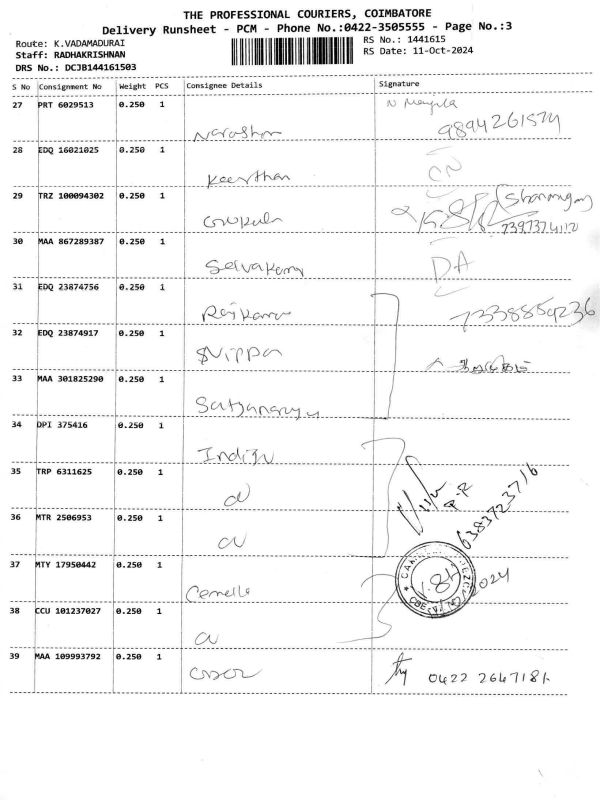 THE PROFESSIONAL COURIERS, COIMBATORE
Delivery Runsheet - PCM - Phone No.:0422-3505555 - Page No.:3
Route: K.VADAMADURAI
RS No.: 1441615
Staff: RADHAKRISHNAN
RS Date: 11-Oct-2024
DRS No.: DCJB144161503
S No Consignment No Weight PCS Consignee Details Signature
27 PRT 6029513 0.250 1
9894261574
28 EDQ 16021025 0.250 1 Keerthan
CN
29 TRZ 100094302 0.250 1 Gokula
Shanmugam
7397374112
30 MAA 867289387 0.250 1 Selvakumar
DA
31 EDQ 23874756 0.250 1 Rajkumar
7338854236
32 EDQ 23874917 0.250 1 Nippon
33 MAA 301825290 0.250 1 Satyanarayan
34 DPI 375416 0.250 1 Indigo
35 TRP 6311625 0.250 1
6383723716
36 MTR 2506953 0.250 1
37 MTY 17950442 0.250 1
38 CCU 101237027 0.250 1
39 MAA 109993792 0.250 1
0422 2647181